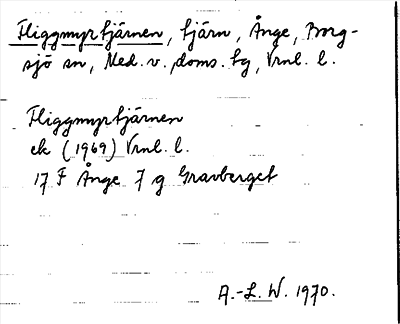 Fliggmyrtjärnen, tjärn, Ånge, Borg-
sjö sn, Med. v. doms. tg, Vrnl. l.
Fliggmyrtjärnen
ek (1969) Vrnl. l.
17 F Ånge 7 g Gravberget
A.-L. W. 1970.